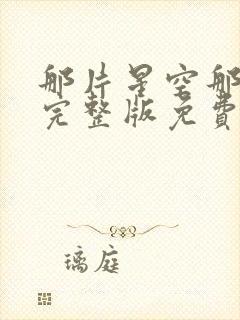 那片星空那
完整版免费
璃庭